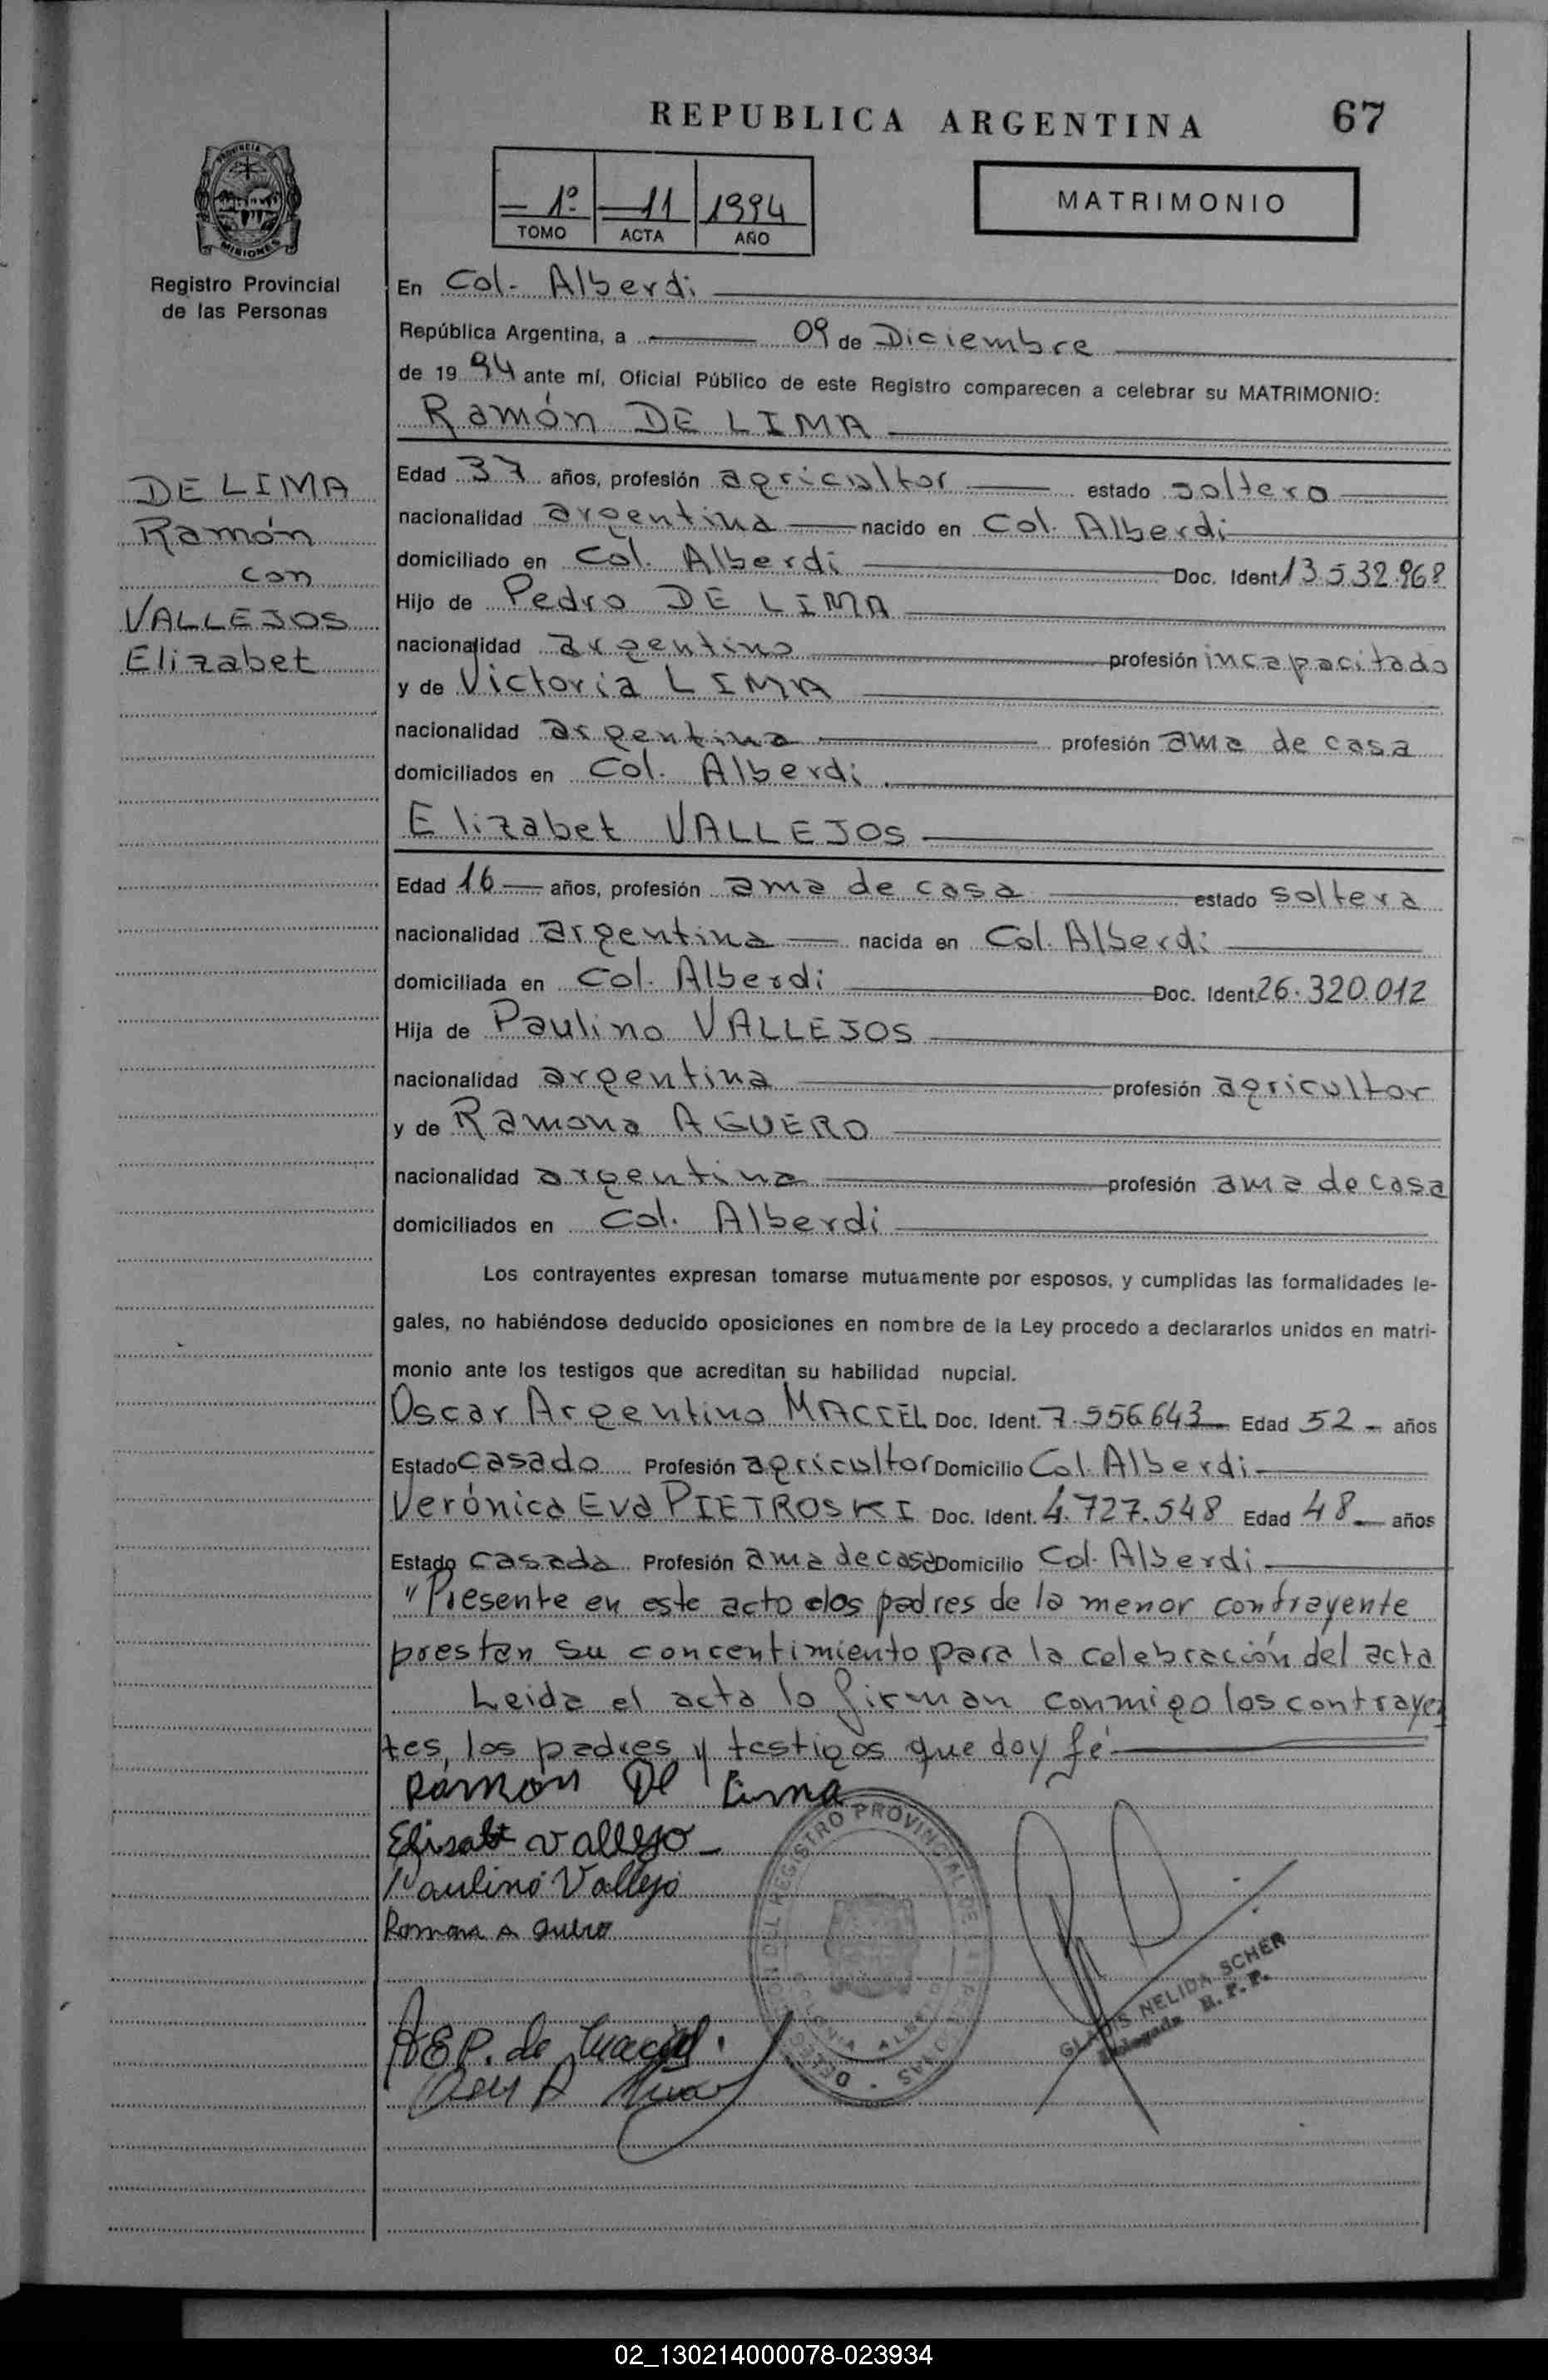 REPUBLICA ARGENTINA 67
1º 11 1994
TOMO ACTA AÑO
MATRIMONIO
PROVINCIA DE MISIONES
Registro Provincial
de las Personas
DE LIMA
Ramón
con
VALLEJOS
Elizabet
En Col. Alberdi
República Argentina, a 09 de Diciembre
de 1994 ante mí, Oficial Público de este Registro comparecen a celebrar su MATRIMONIO:
Ramón DE LIMA
Edad 37 años, profesión agricultor estado soltero
nacionalidad argentina nacido en Col. Alberdi
domiciliado en Col. Alberdi Doc. Ident. 13.532.968
Hijo de Pedro DE LIMA
nacionalidad argentino profesión incapacitado
y de Victoria LIMA
nacionalidad argentina profesión ama de casa
domiciliados en Col. Alberdi.
Elizabet VALLEJOS
Edad 16 años, profesión ama de casa estado soltera
nacionalidad argentina nacida en Col. Alberdi
domiciliada en Col. Alberdi Doc. Ident. 26.320.012
Hija de Paulino VALLEJOS
nacionalidad argentina profesión agricultor
y de Ramona AGUERO
nacionalidad argentina profesión ama de casa
domiciliados en Col. Alberdi
Los contrayentes expresan tomarse mutuamente por esposos, y cumplidas las formalidades le-
gales, no habiéndose deducido oposiciones en nombre de la Ley procedo a declararlos unidos en matri-
monio ante los testigos que acreditan su habilidad nupcial.
Oscar Argentino MACIEL Doc. Ident. 7.556.643 Edad 52 años
Estado casado Profesión agricultor Domicilio Col. Alberdi
Verónica Eva PIETROSKI Doc. Ident. 4.727.548 Edad 48 años
Estado casada Profesión ama de casa Domicilio Col. Alberdi
"Presente en este acto los padres de la menor contrayente
prestan su concentimiento para la celebración del acta
Leida el acta lo firman conmigo los contrayen
tes, los padres y testigos que doy fé
Ramón De Lima
Elisabt Vallejo
Paulino Vallejo
Romona A guero
DELEGACION DEL REGISTRO PROVINCIAL DE LAS PERSONAS
COLONIA ALBERDI
GLADIS NELIDA SCHER
Delegada R. P. P.
V.E.P. de Maciel.
02_130214000078-023934